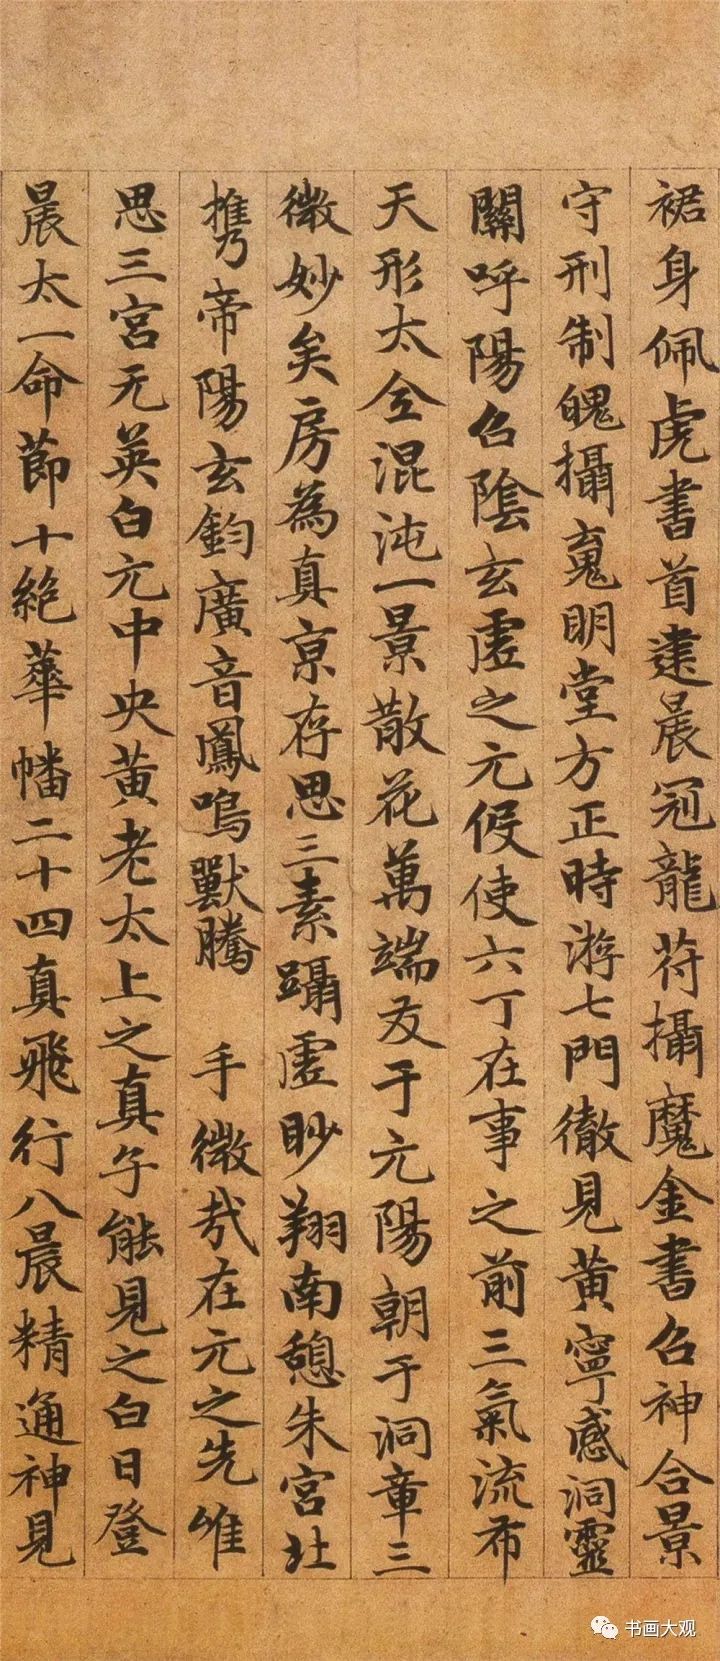 裙身佩虎書首建晨冠龍苻攝魔金書召神合景
守刑制魄攝䰟明堂方正時游七門徹見黄寧感洞靈
關呼陽召陰玄虚之元役使六丁在事之前三氣流布
天形太仝混沌一景散花萬端友于元陽朝于洞章三
微妙矣房為真京存思三素躡虚眇翔南憩朱宮北
携帝陽玄鈞廣音鳳鳴獸騰 手微哉在元之先唯
思三宮无英白元中央黄老太上之真乍能見之白日登
晨太一命節十絶華幡二十四真飛行八晨精通神見
书画大观